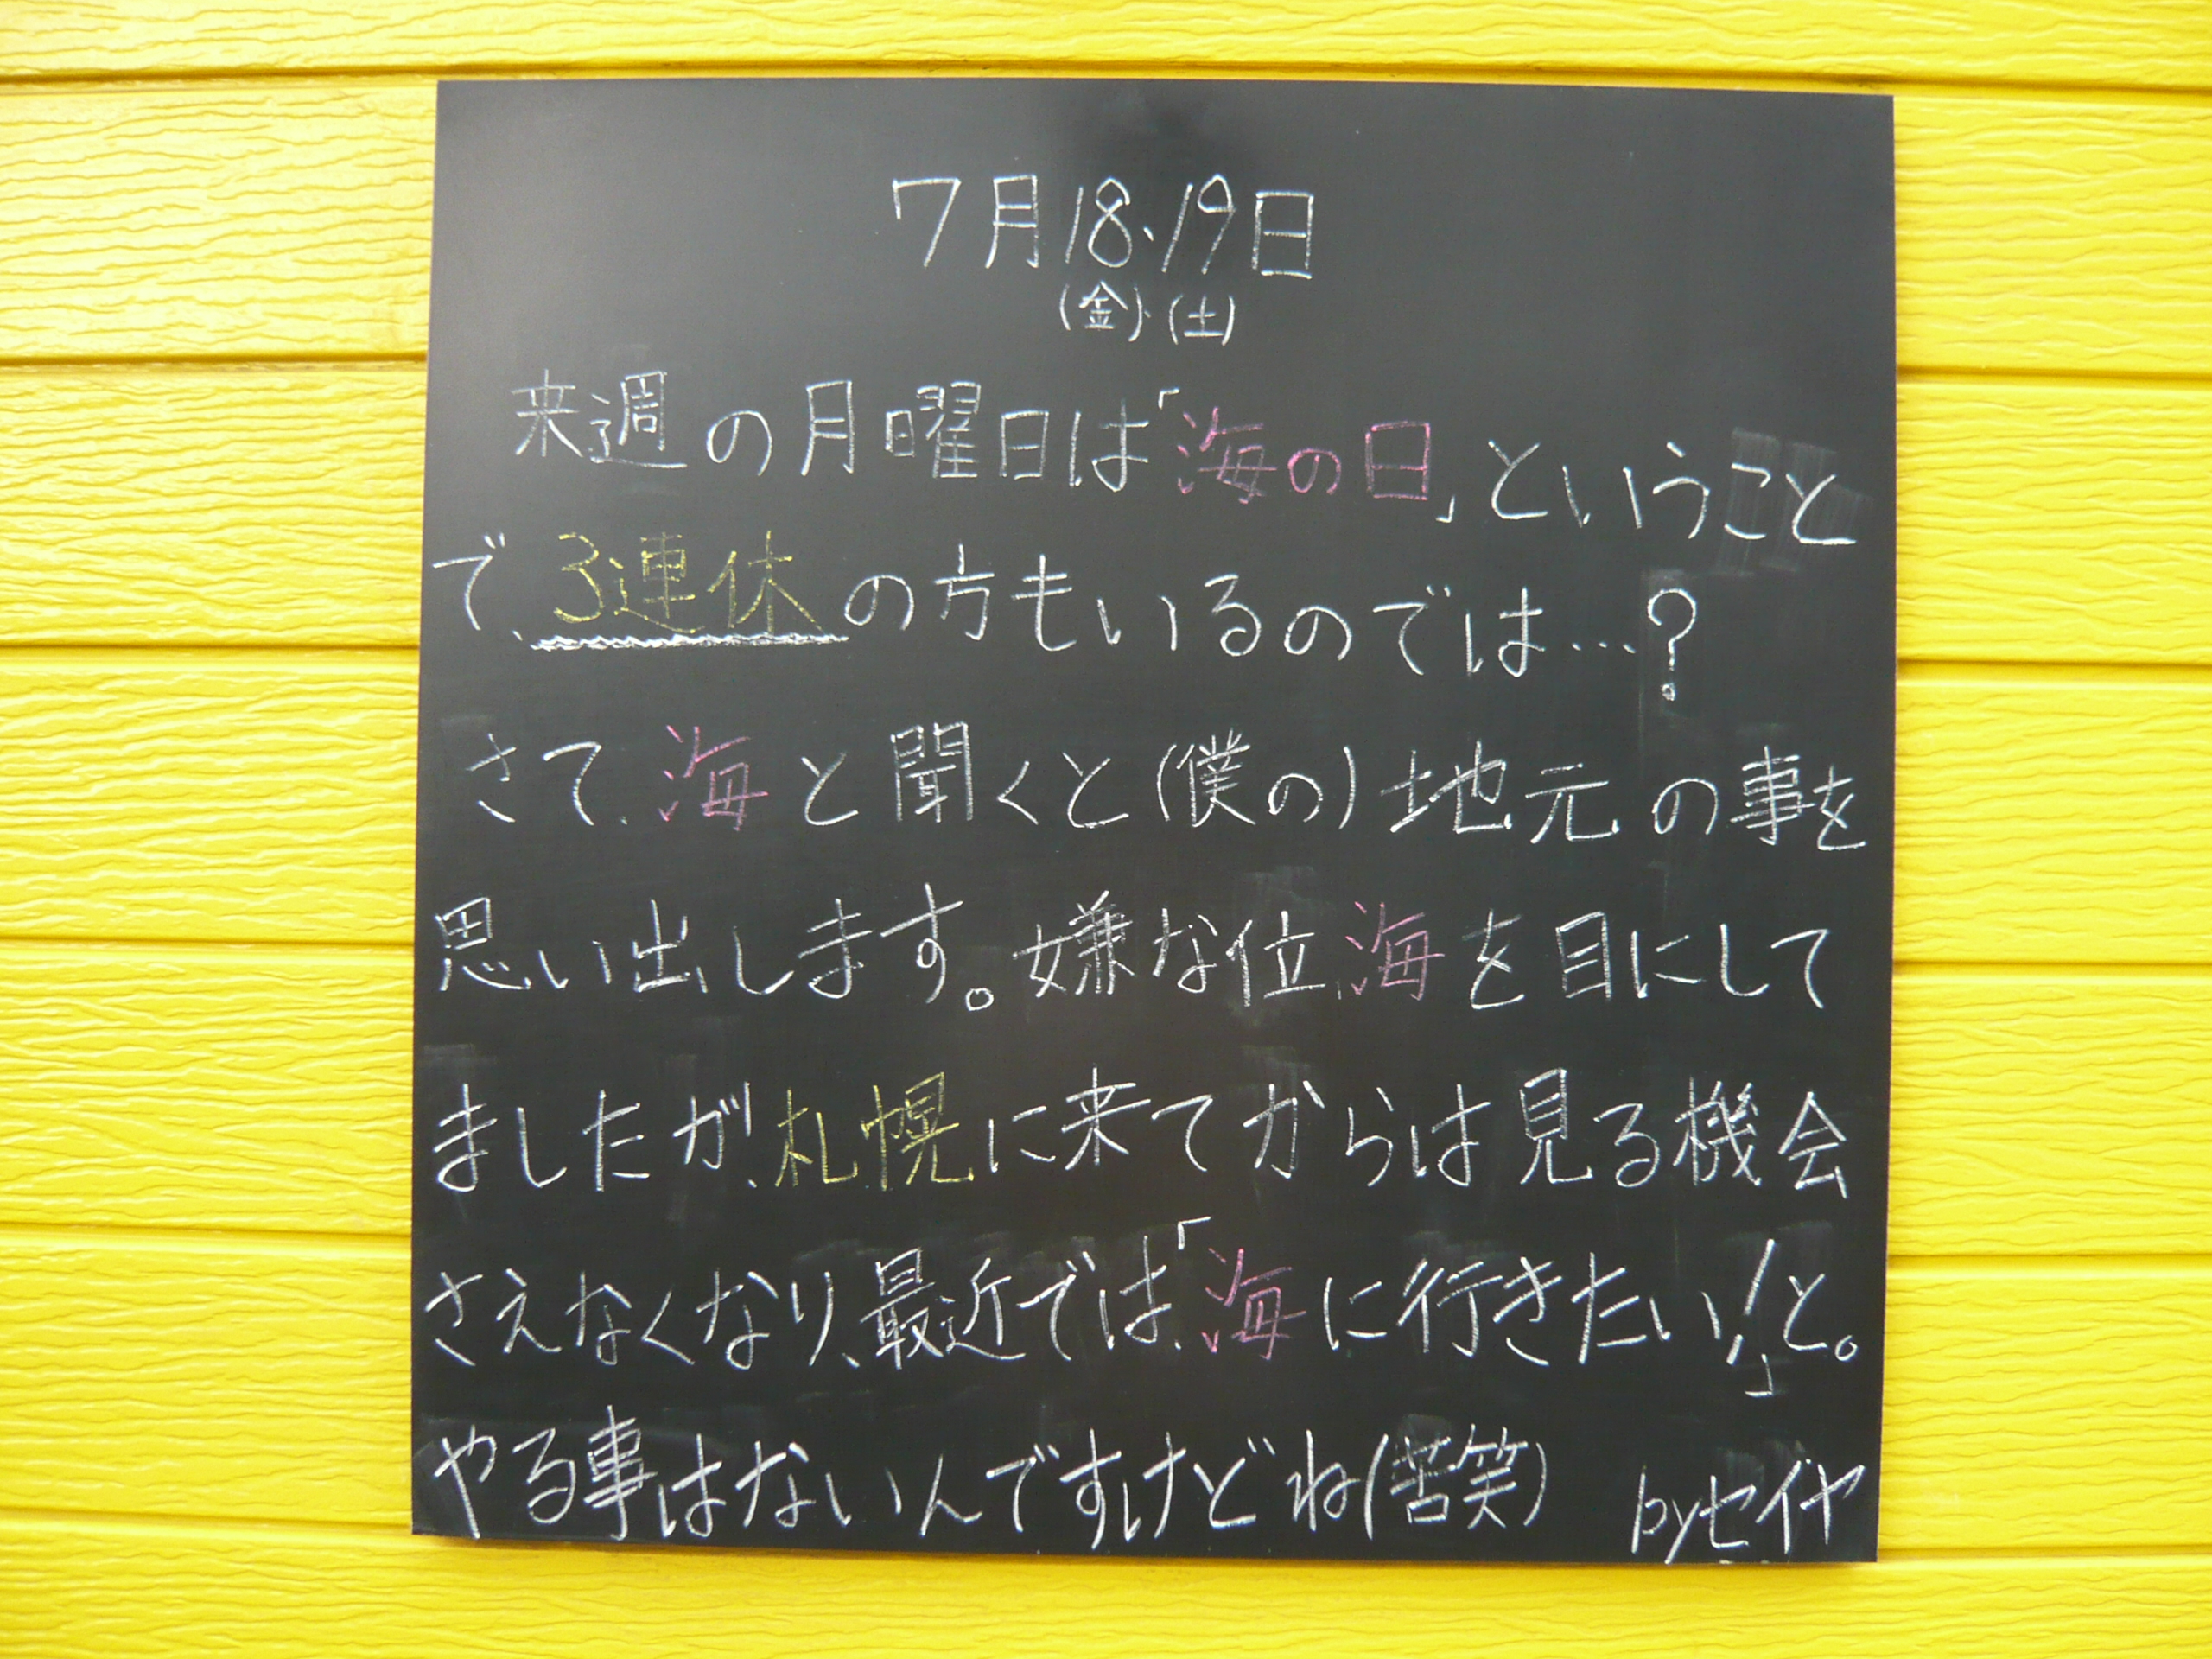 7月18、19日
(金)・(土)
来週の月曜日は「海の日」ということ
で、3連休の方もいるのでは…?
さて、海と聞くと(僕の)地元の事を
思い出します。嫌な位、海を目にして
ましたが、札幌に来てからは見る機会
さえなくなり、最近では、「海に行きたい!」と。
やる事はないんですけどね(苦笑) byセイヤ